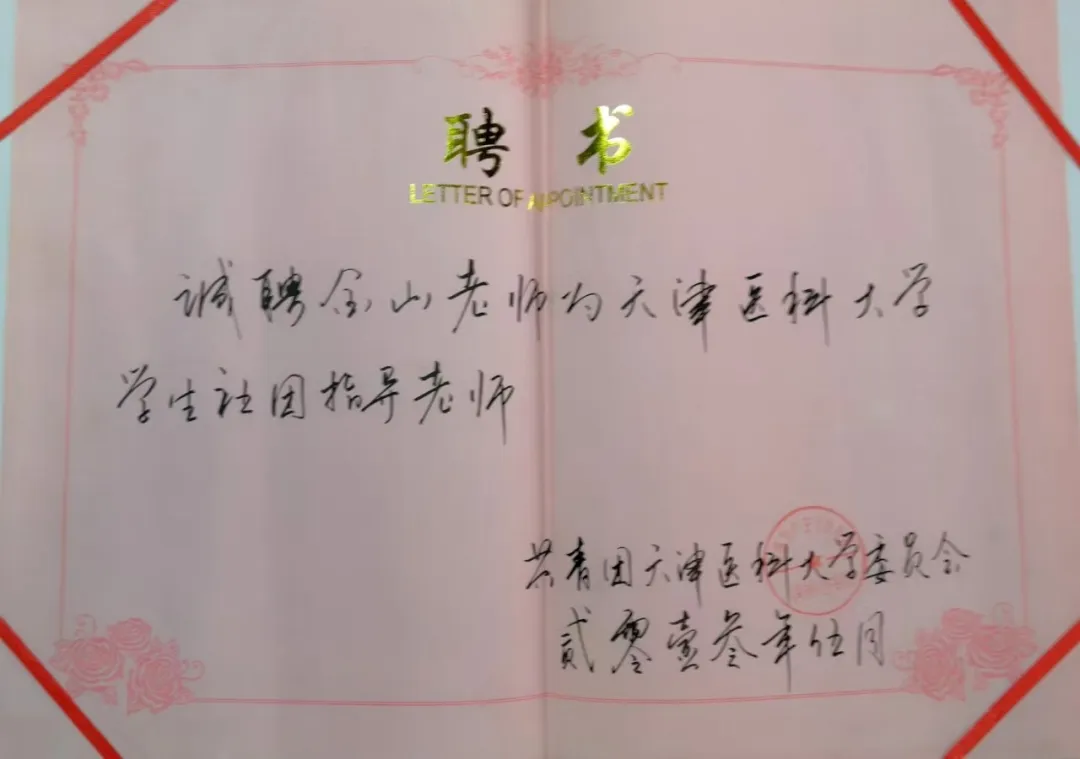 聘 书
LETTER OF APPOINTMENT
诚聘金山老师为天津医科大学
学生社团指导老师
共青团天津医科大学委员会
贰零壹叁年伍月